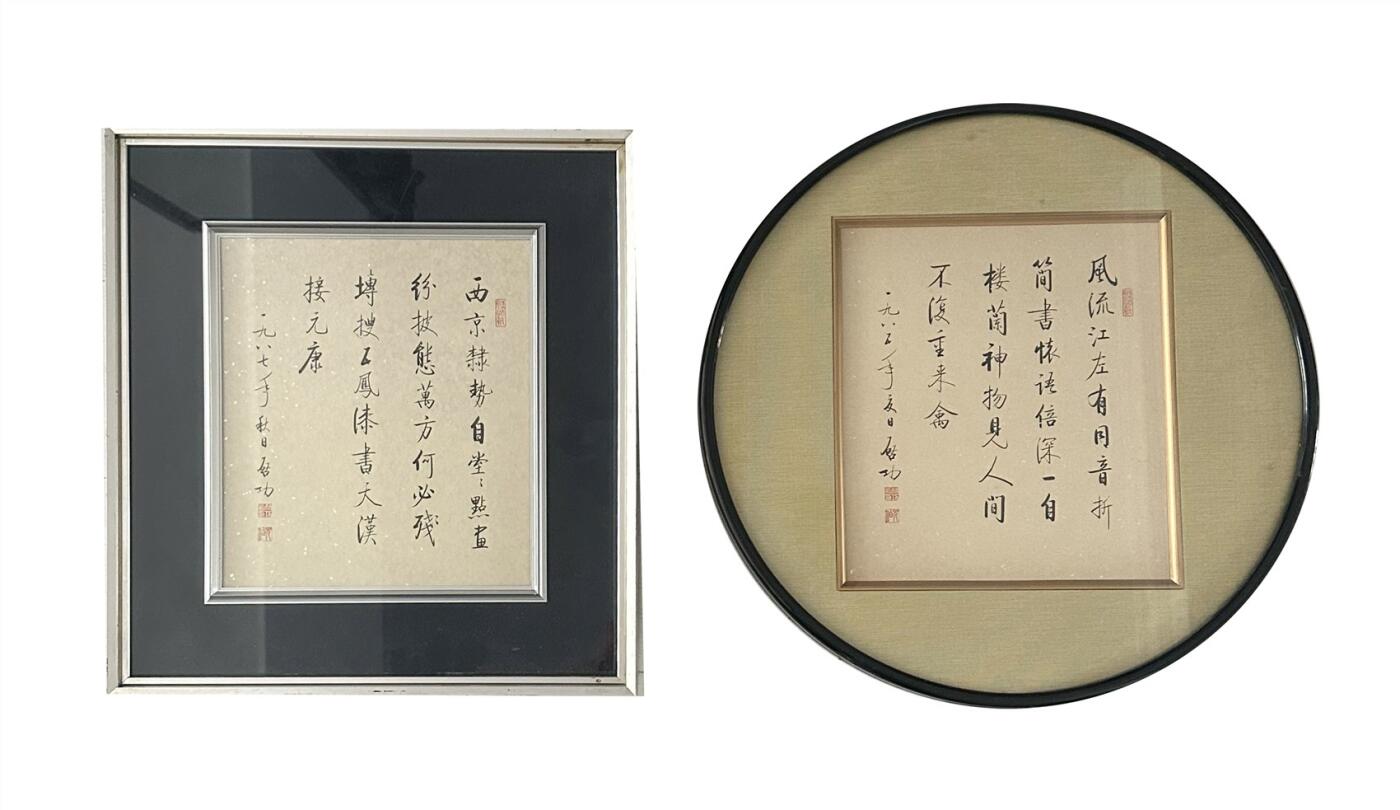 西京隸勢自堂〻點畫
紛披態萬方何必殘
塼搜五鳳漆書天漢
接元康
一九八七年秋日啟功
風流江左有同音折
簡書懷語倍深一自
楼蘭神物見人間
不復重来禽
一九八五年夏日啟功